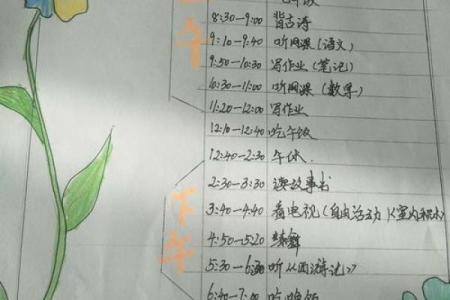 上午
吃早饭
8:30—9:00 背古诗
9:10—9:40 听网课(语文)
9:50—10:30 写作业(笔记)
10:30—11:00 听网课(数学)
11:20—12:00 写作业
12:10—12:40 吃午饭
12:40—2:30 午休.
下午
2:30—3:30 读故事书
3:40—4:40 看电视(自由活动)(室内积木)
4:50—5:20 练舞
5:30—6:30 听《西游记》
6:40—7:00 吃晚饭